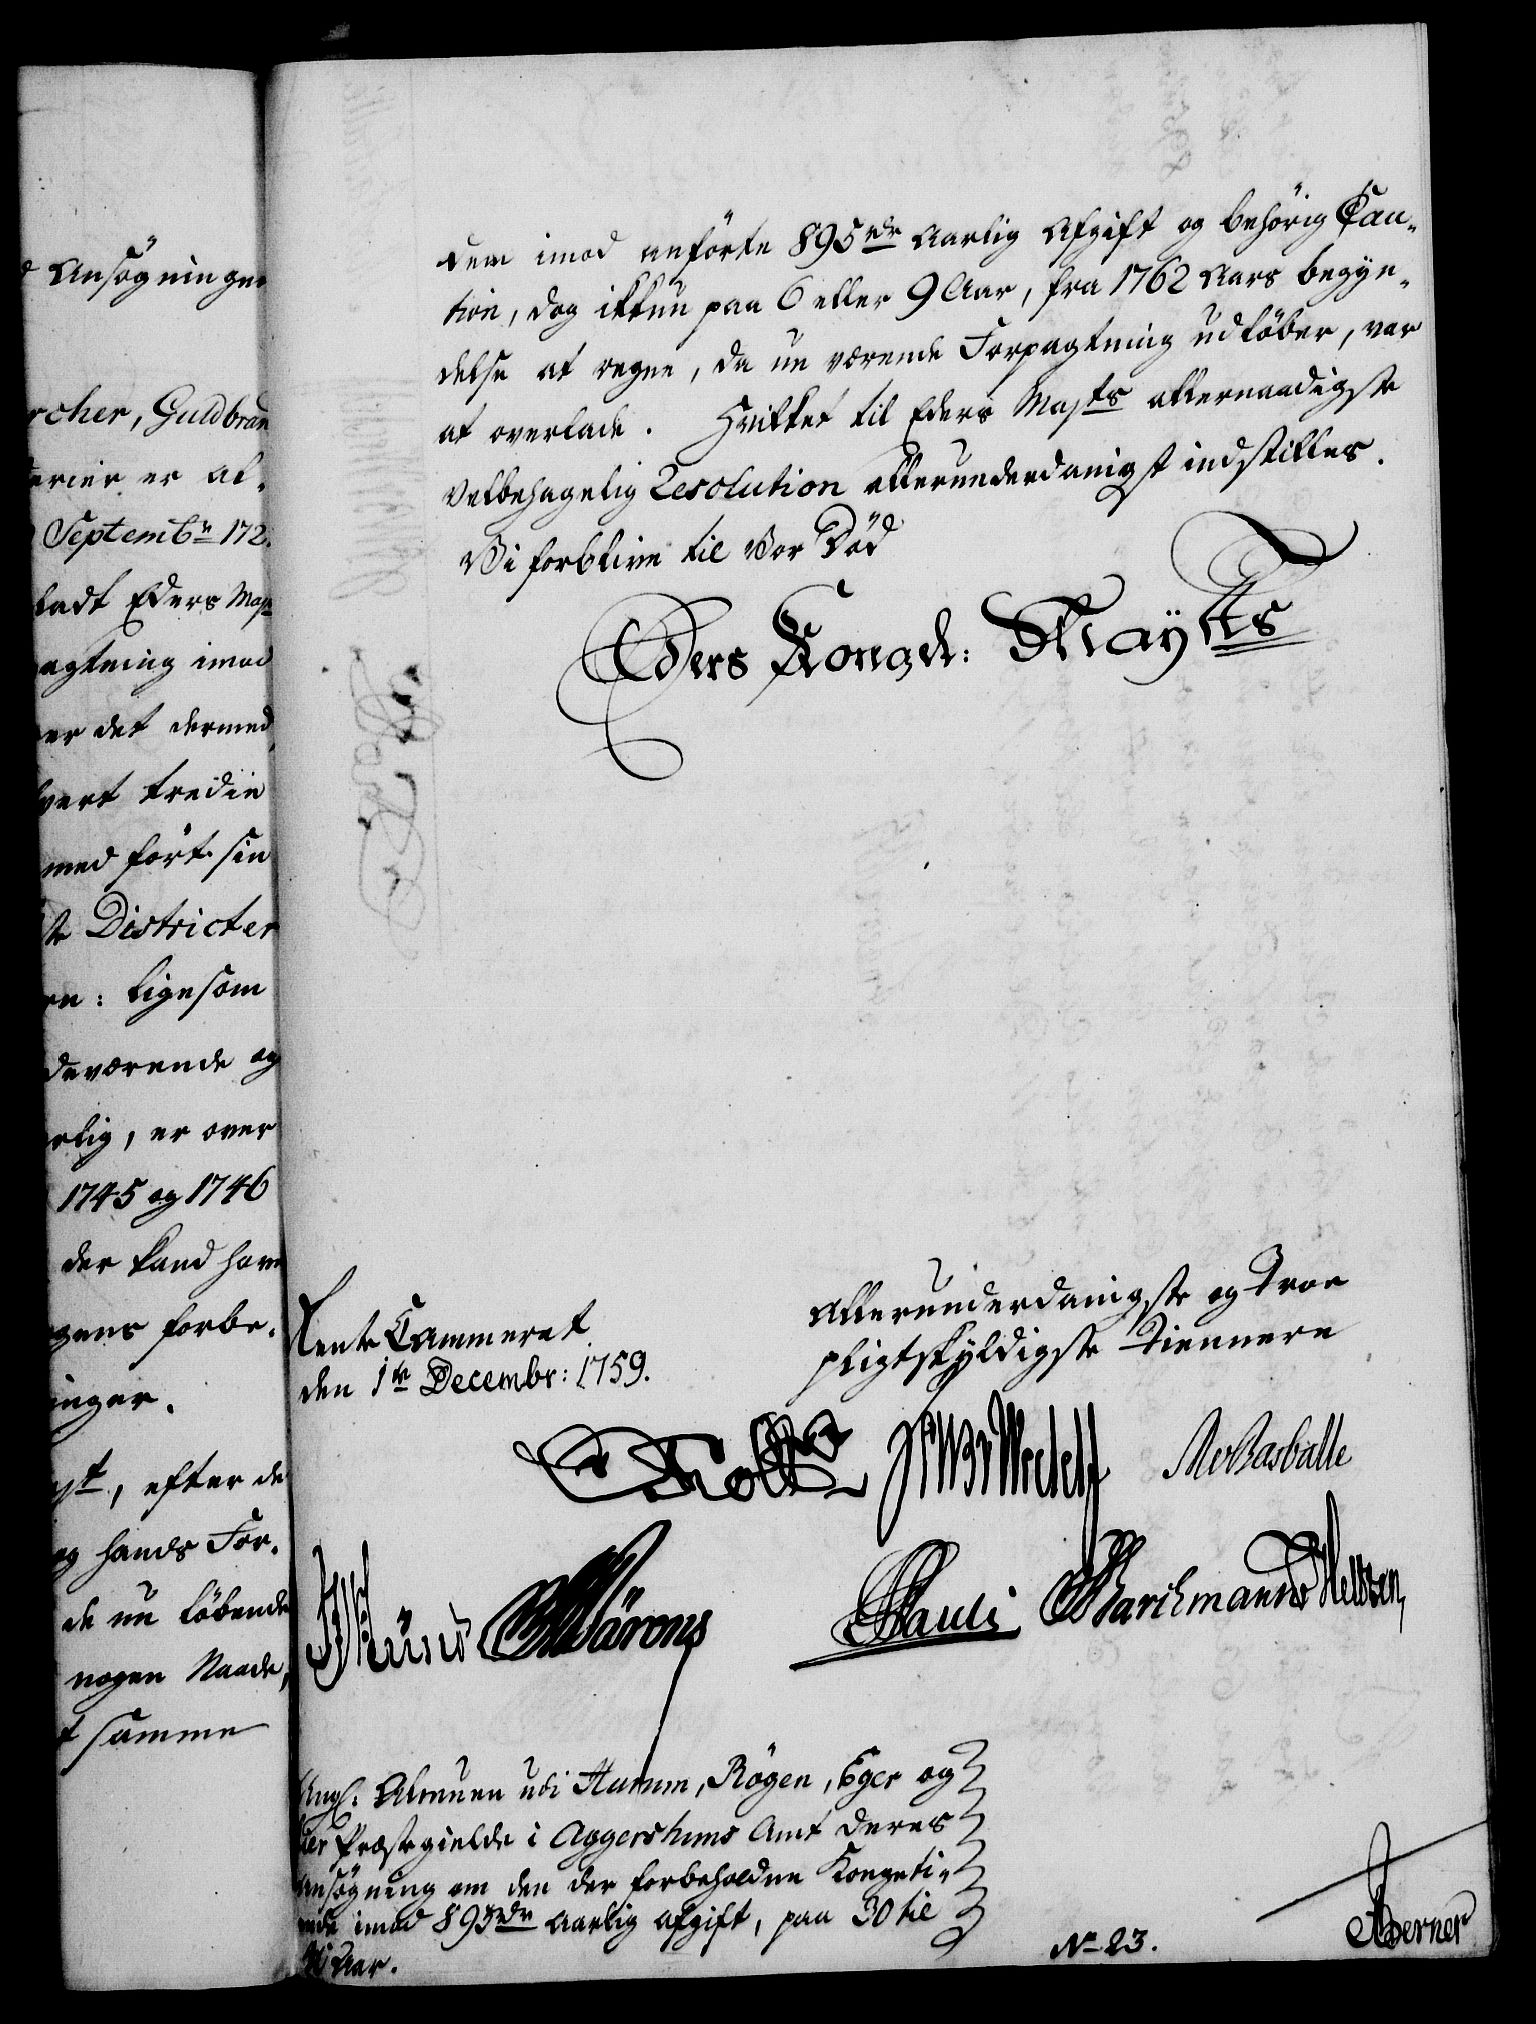 Ansögninger
rcher, Guldbran
terier er af-
Septembr 172
ladt Eders Mayt
agtning imod
er det dermed
hvert tredie
med fört sin
Districter
en: ligesom
deværende og
rlig, er over
1745 og 1746
der kand have
gens forbe-
inger.
, efter de
og hands For-
de nu löbende
nogen Naade,
t samme
dem imod anförte 895 rdr Aarlig Afgift og behörig Cau-
tion, dog ikkun paa 6 eller 9 Aar, fra 1762 Aars begyn-
delse at regne, da nu værende Forpagtning udlöber, var
at overlade. Hvilket til Eders Mayts allernaadigste
Velbehagelig Resolution allerunderdanigst indstilles.
Vi forblive til Vor Död
Eders Kongel: Maytts
Rente Cammeret
den 1te Decembr: 1759.
Allerunderdanigste og Troe
pligtskyldigste Tiennere
Holtz Wedell Basballe
Pauli Marchmann Nelssen
Ang: Almuen udi Hurum, Rögen, Eger og
Lier Præstegielde i Aggershuus Amt deres
Ansögning om den der forbeholdne Kongeti-
ende imod 895 rdr Aarlig afgift, paa 30 til
Aar.
No 23.
Berner